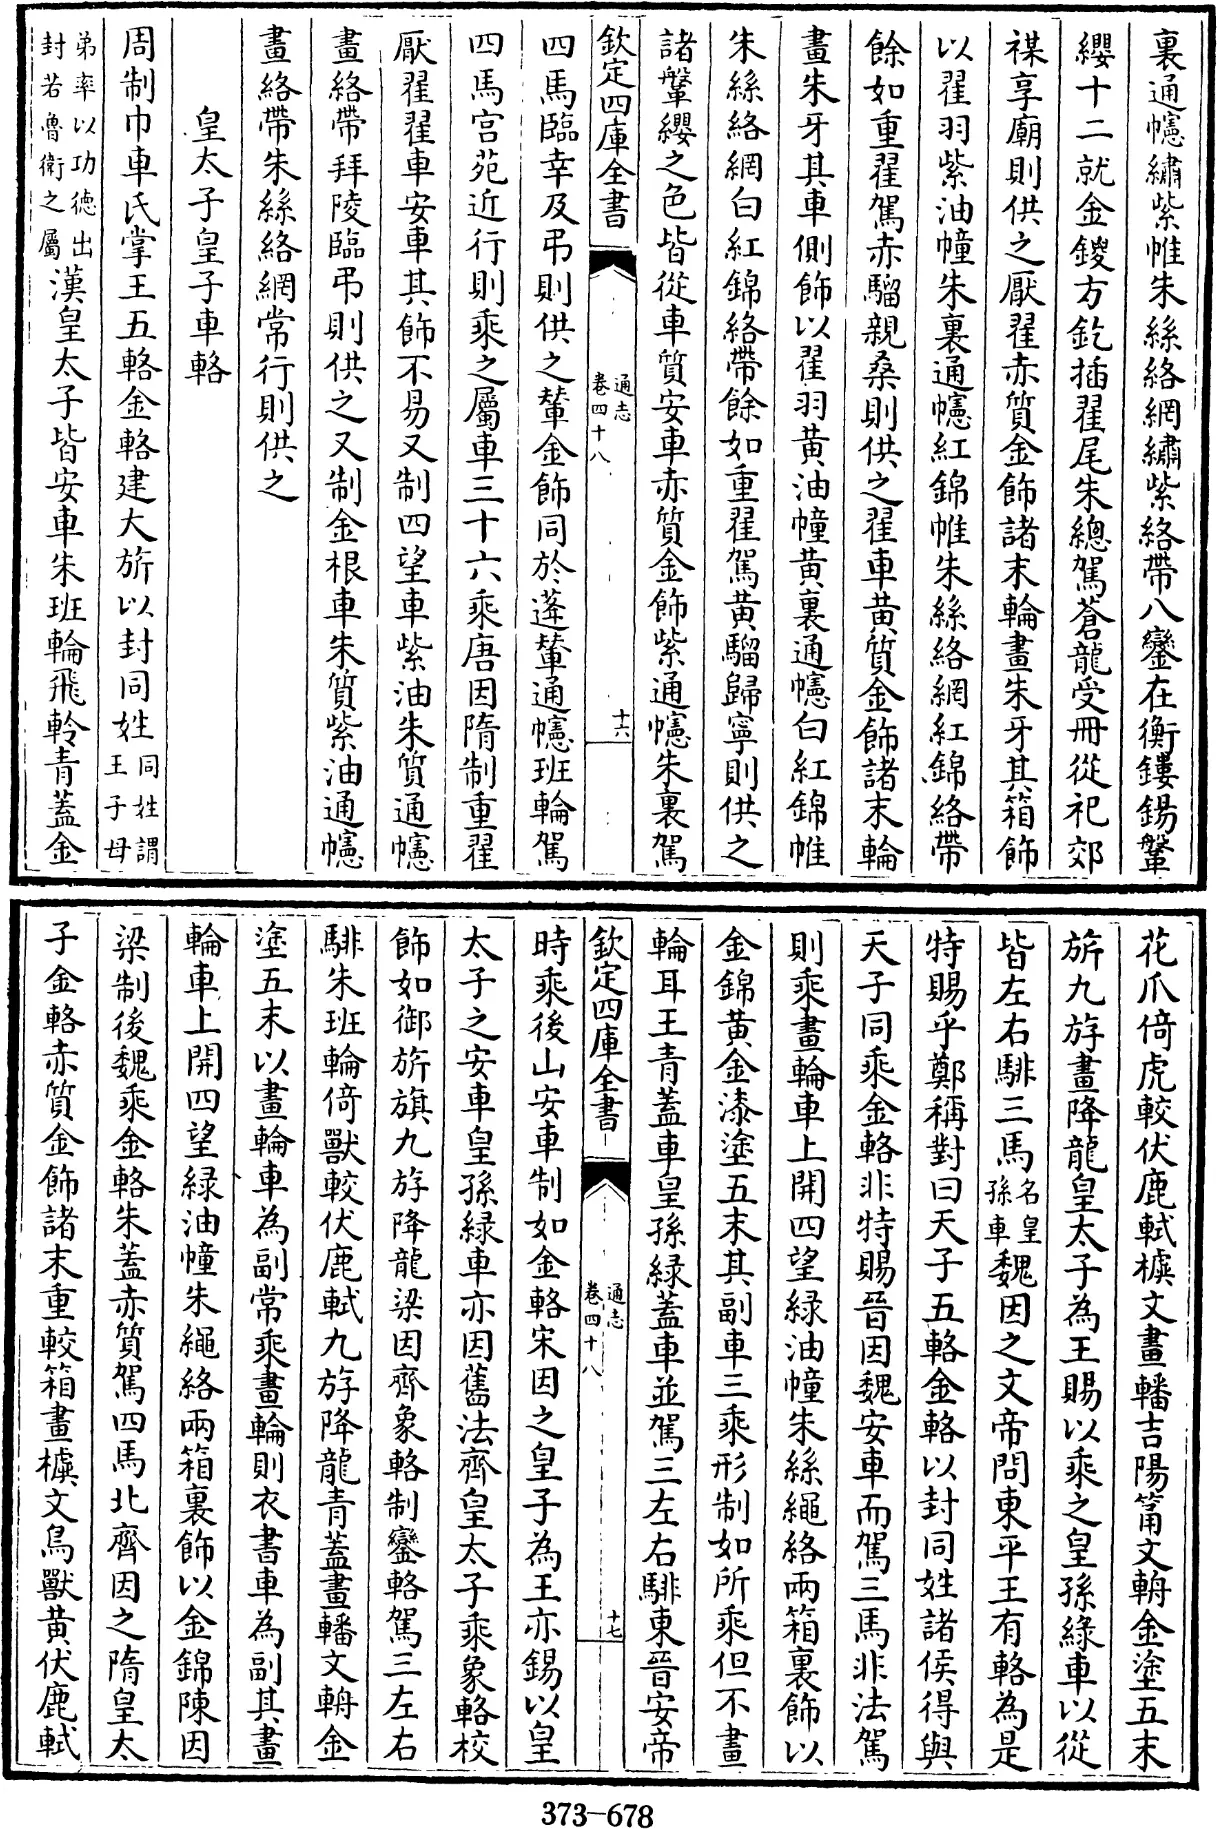 裏通幰繡紫帷朱絲絡網繡紫絡帶八鑾在衡鏤錫鞶
纓十二就金鍐方釳插翟尾朱總駕蒼龍受冊從祀郊
禖享廟則供之厭翟赤質金飾諸末輪畫朱牙其箱飾
以翟羽紫油幢朱裏通幰紅錦帷朱絲絡網紅錦絡帶
餘如重翟駕赤騮親桑則供之翟車黄質金飾諸末輪
畫朱牙其車側飾以翟羽黄油幢黄裏通幰白紅錦帷
朱絲絡網白紅錦絡帶餘如重翟駕黄騮歸寧則供之
諸鞶纓之色皆從車質安車赤質金飾紫通幰朱裏駕
欽定四庫全書
通志
卷四十八
十六
四馬臨幸及弔則供之輦金飾同於蓬輦通幰班輪駕
四馬宮苑近行則乘之屬車三十六乘唐因隋制重翟
厭翟翟車安車其飾不易又制四望車紫油朱質通幰
畫絡帶拜陵臨弔則供之又制金根車朱質紫油通幰
畫絡帶朱絲絡網常行則供之
皇太子皇子車輅
周制巾車氏掌王五輅金輅建大旂以封同姓同姓謂王子母
弟率以功德出封若魯衛之屬漢皇太子皆安車朱班輪飛軨青蓋金
花爪倚虎較伏鹿軾㯫文畫轓吉陽筩文輈金塗五末
旂九斿畫降龍皇太子為王賜以乘之皇孫緑車以從
皆左右騑三馬名皇孫車魏因之文帝問東平王有輅為是
特賜乎鄭稱對曰天子五輅金輅以封同姓諸侯得與
天子同乘金輅非特賜晉因魏安車而駕三馬非法駕
則乘畫輪車上開四望緑油幢朱絲繩絡兩箱裏飾以
金錦黄金漆塗五末其副車三乘形制如所乘但不畫
輪耳王青蓋車皇孫緑蓋車並駕三左右騑東晉安帝
欽定四庫全書
通志
卷四十八
十七
時乘後山安車制如金輅宋因之皇子為王亦錫以皇
太子之安車皇孫緑車亦因舊法齊皇太子乘象輅校
飾如御旂旗九斿降龍梁因齊象輅制鑾輅駕三左右
騑朱班輪倚獸較伏鹿軾九斿降龍青蓋畫轓文輈金
塗五末以畫輪車為副常乘畫輪則衣書車為副其畫
輪車上開四望緑油幢朱繩絡兩箱裏飾以金錦陳因
梁制後魏乘金輅朱蓋赤質駕四馬北齊因之隋皇太
子金輅赤質金飾諸末重較箱畫㯫文鳥獸黄伏鹿軾
373-678